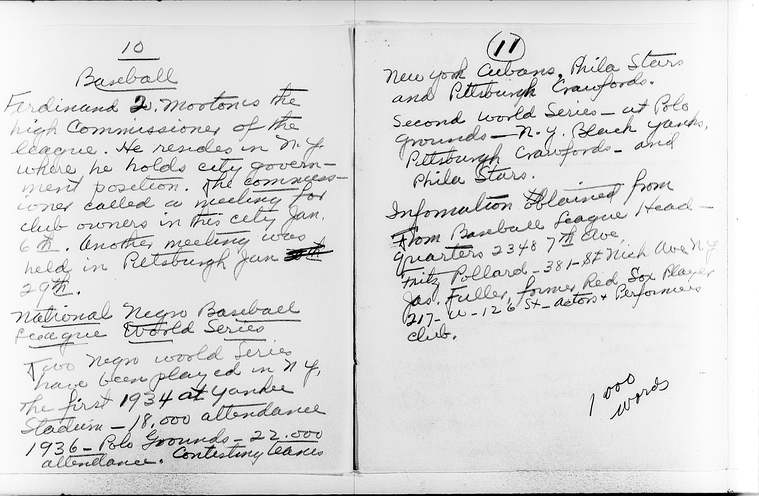 10
Baseball
Ferdinand Q. Morton is the
high Commissioner of the
league. He resides in N.Y.
where he holds city govern-
ment position. The commiss-
ioner called a meeting for
club owners in this city Jan.
6th. Another meeting was
held in Pittsburgh Jan
29th.
National Negro Baseball
League World Series
Two Negro world Series
have been played in N.Y.
The first 1934 at Yankee
Stadium - 18,000 attendance
1936 - Polo Grounds - 22.000
attendance. Contesting teams
11
New York Cubans, Phila Stars
and Pittsburgh Crawfords.
Second World Series - at Polo
Grounds - N.Y. Black Yanks,
Pittsburgh Crawfords - and
Phila Stars.
Infomation Obtained from
From Baseball League Head-
quarters 2348 7th Ave
Fritz Pollard - 381 - St Nich Ave N.Y.
Jas. Fuller, former Red Sox Player
217 - W - 126 St - Actors + Performers
club.
1000
words